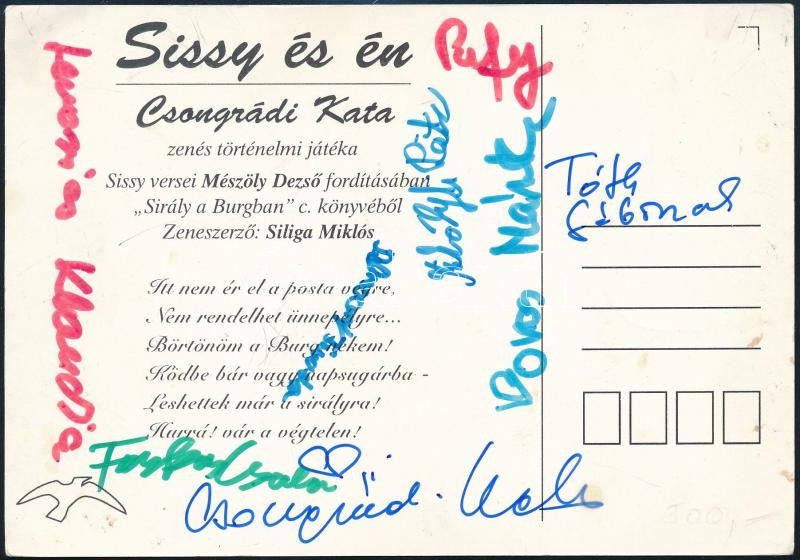 Sissy és én
Csongrádi Kata
zenés történelmi játéka
Sissy versei Mészöly Dezső fordításában
„Sirály a Burgban” c. könyvéből
Zeneszerző: Siliga Miklós
Itt nem ér el a posta végre,
Nem rendelhet ünnepélyre...
Börtönöm a Burg nekem!
Ködbe bár vagy napsugárba -
Leshettek már a sirályra!
Hurrá! vár a végtelen!
Klaudia
Csaba
Csongrádi Kata
Tóth
300,-